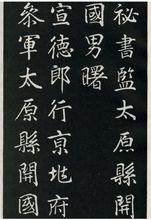 祕書監太原縣開
國男曙
宣德郎行京地府
參軍太原縣開國